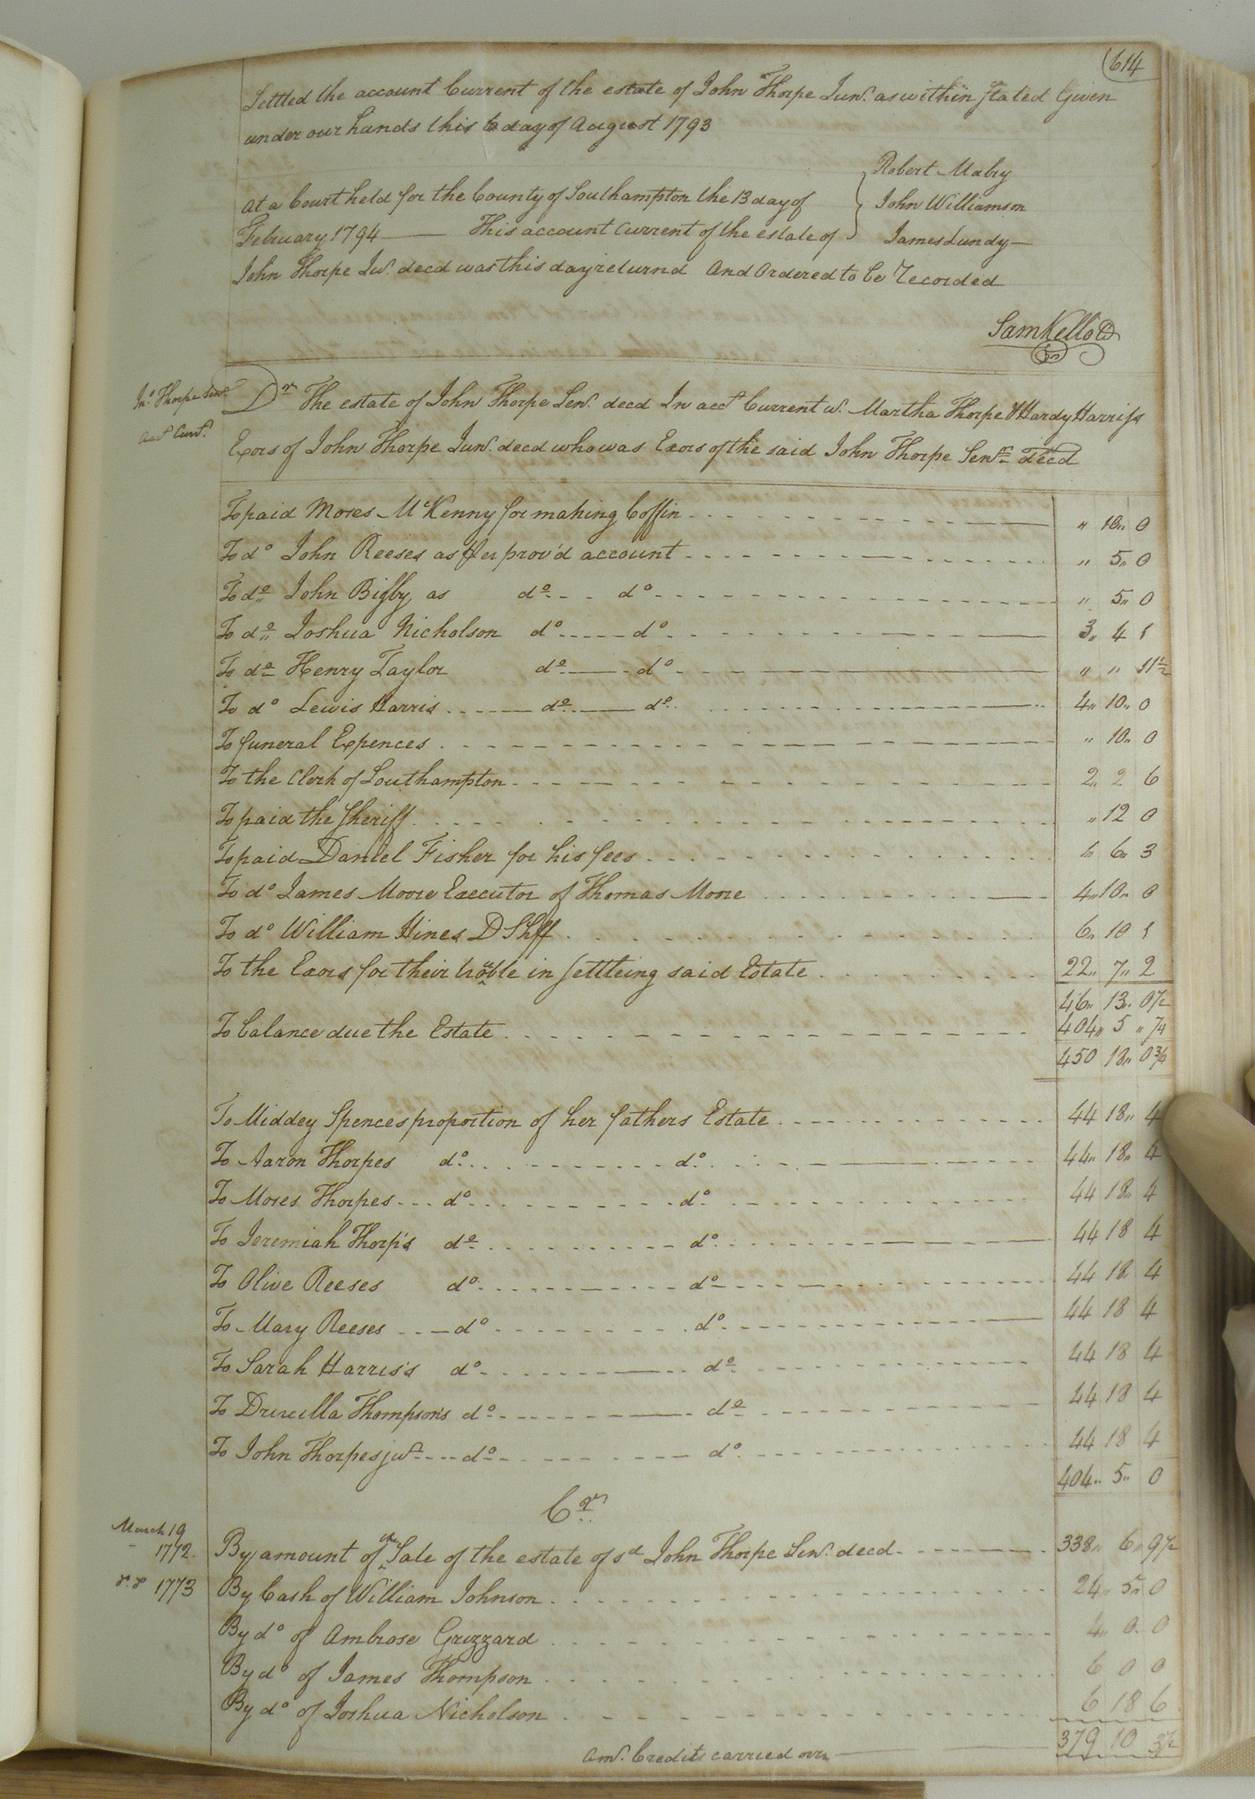 614
Settled the account Current of the estate of John Thorpe Junr. as within stated Given
under our hands this 6 day of August 1793
Robert Mabry
John Williamson
James Lundy
At a Court held for the County of Southampton the 13 day of
February 1794 — This account Current of the estate of
John Thorpe Jur. decd was this day returnd And Ordered to be Recorded
Sam Kello
Jno. Thorpe Senr.
Acct Currt.
Dr The estate of John Thorpe Senr. decd In acct Current w. Martha Thorpe & Hardy Harriss
Exors of John Thorpe Junr. decd who was Exors of the said John Thorpe Senr decd
To paid Moses McKenny for making Coffin " 10 " 0
To do John Reeses as Per prov'd account " 5 " 0
To do John Bigby as do do " 5 " 0
To do Joshua Nicholson do do 3 " 4 1
To do Henry Taylor do do " " 11½
To do Lewis Harris do do 4 " 10 " 0
To funeral Expences " 10 " 0
To the Clerk of Southampton 2 " 2 6
To paid the Sheriff " 12 0
To paid Daniel Fisher for his fees 6 " 3
To do James Moore Executor of Thomas Moore 4 " 10 " 0
To do William Hines D Shff 6 " 10 1
To the Exors for their trouble in settleing said Estate 22 " 7 " 2
46 " 13 " 0½
To balance due the Estate 404 " 5 "
450 18 " 0¾
To Middey Spences proportion of her fathers Estate 44 18 " 4
To Aaron Thorpes do do 44 " 18 " 4
To Moses Thorpes do do 44 18 " 4
To Jeremiah Thorp's do do 44 18 4
To Olive Reeses do do 44 18 4
To Mary Reeses do do 44 18 4
To Sarah Harris's do do 44 18 4
To Drucilla Thompson's do do 44 18 4
To John Thorpes jur do do 44 18 4
404 " 5 " 0
Cr
March 19
1772 By amount of ye Sale of the estate of sd John Thorpe Senr. decd 338 " 6 " 9½
1773 By Cash of William Johnson 24 " 5 " 0
By do of Ambrose Grizzard 4 " 0 " 0
By do of James Thompson 6 0 0
By do of Joshua Nicholson 6 18 6
379 10 3½
Amt. Credits carried over